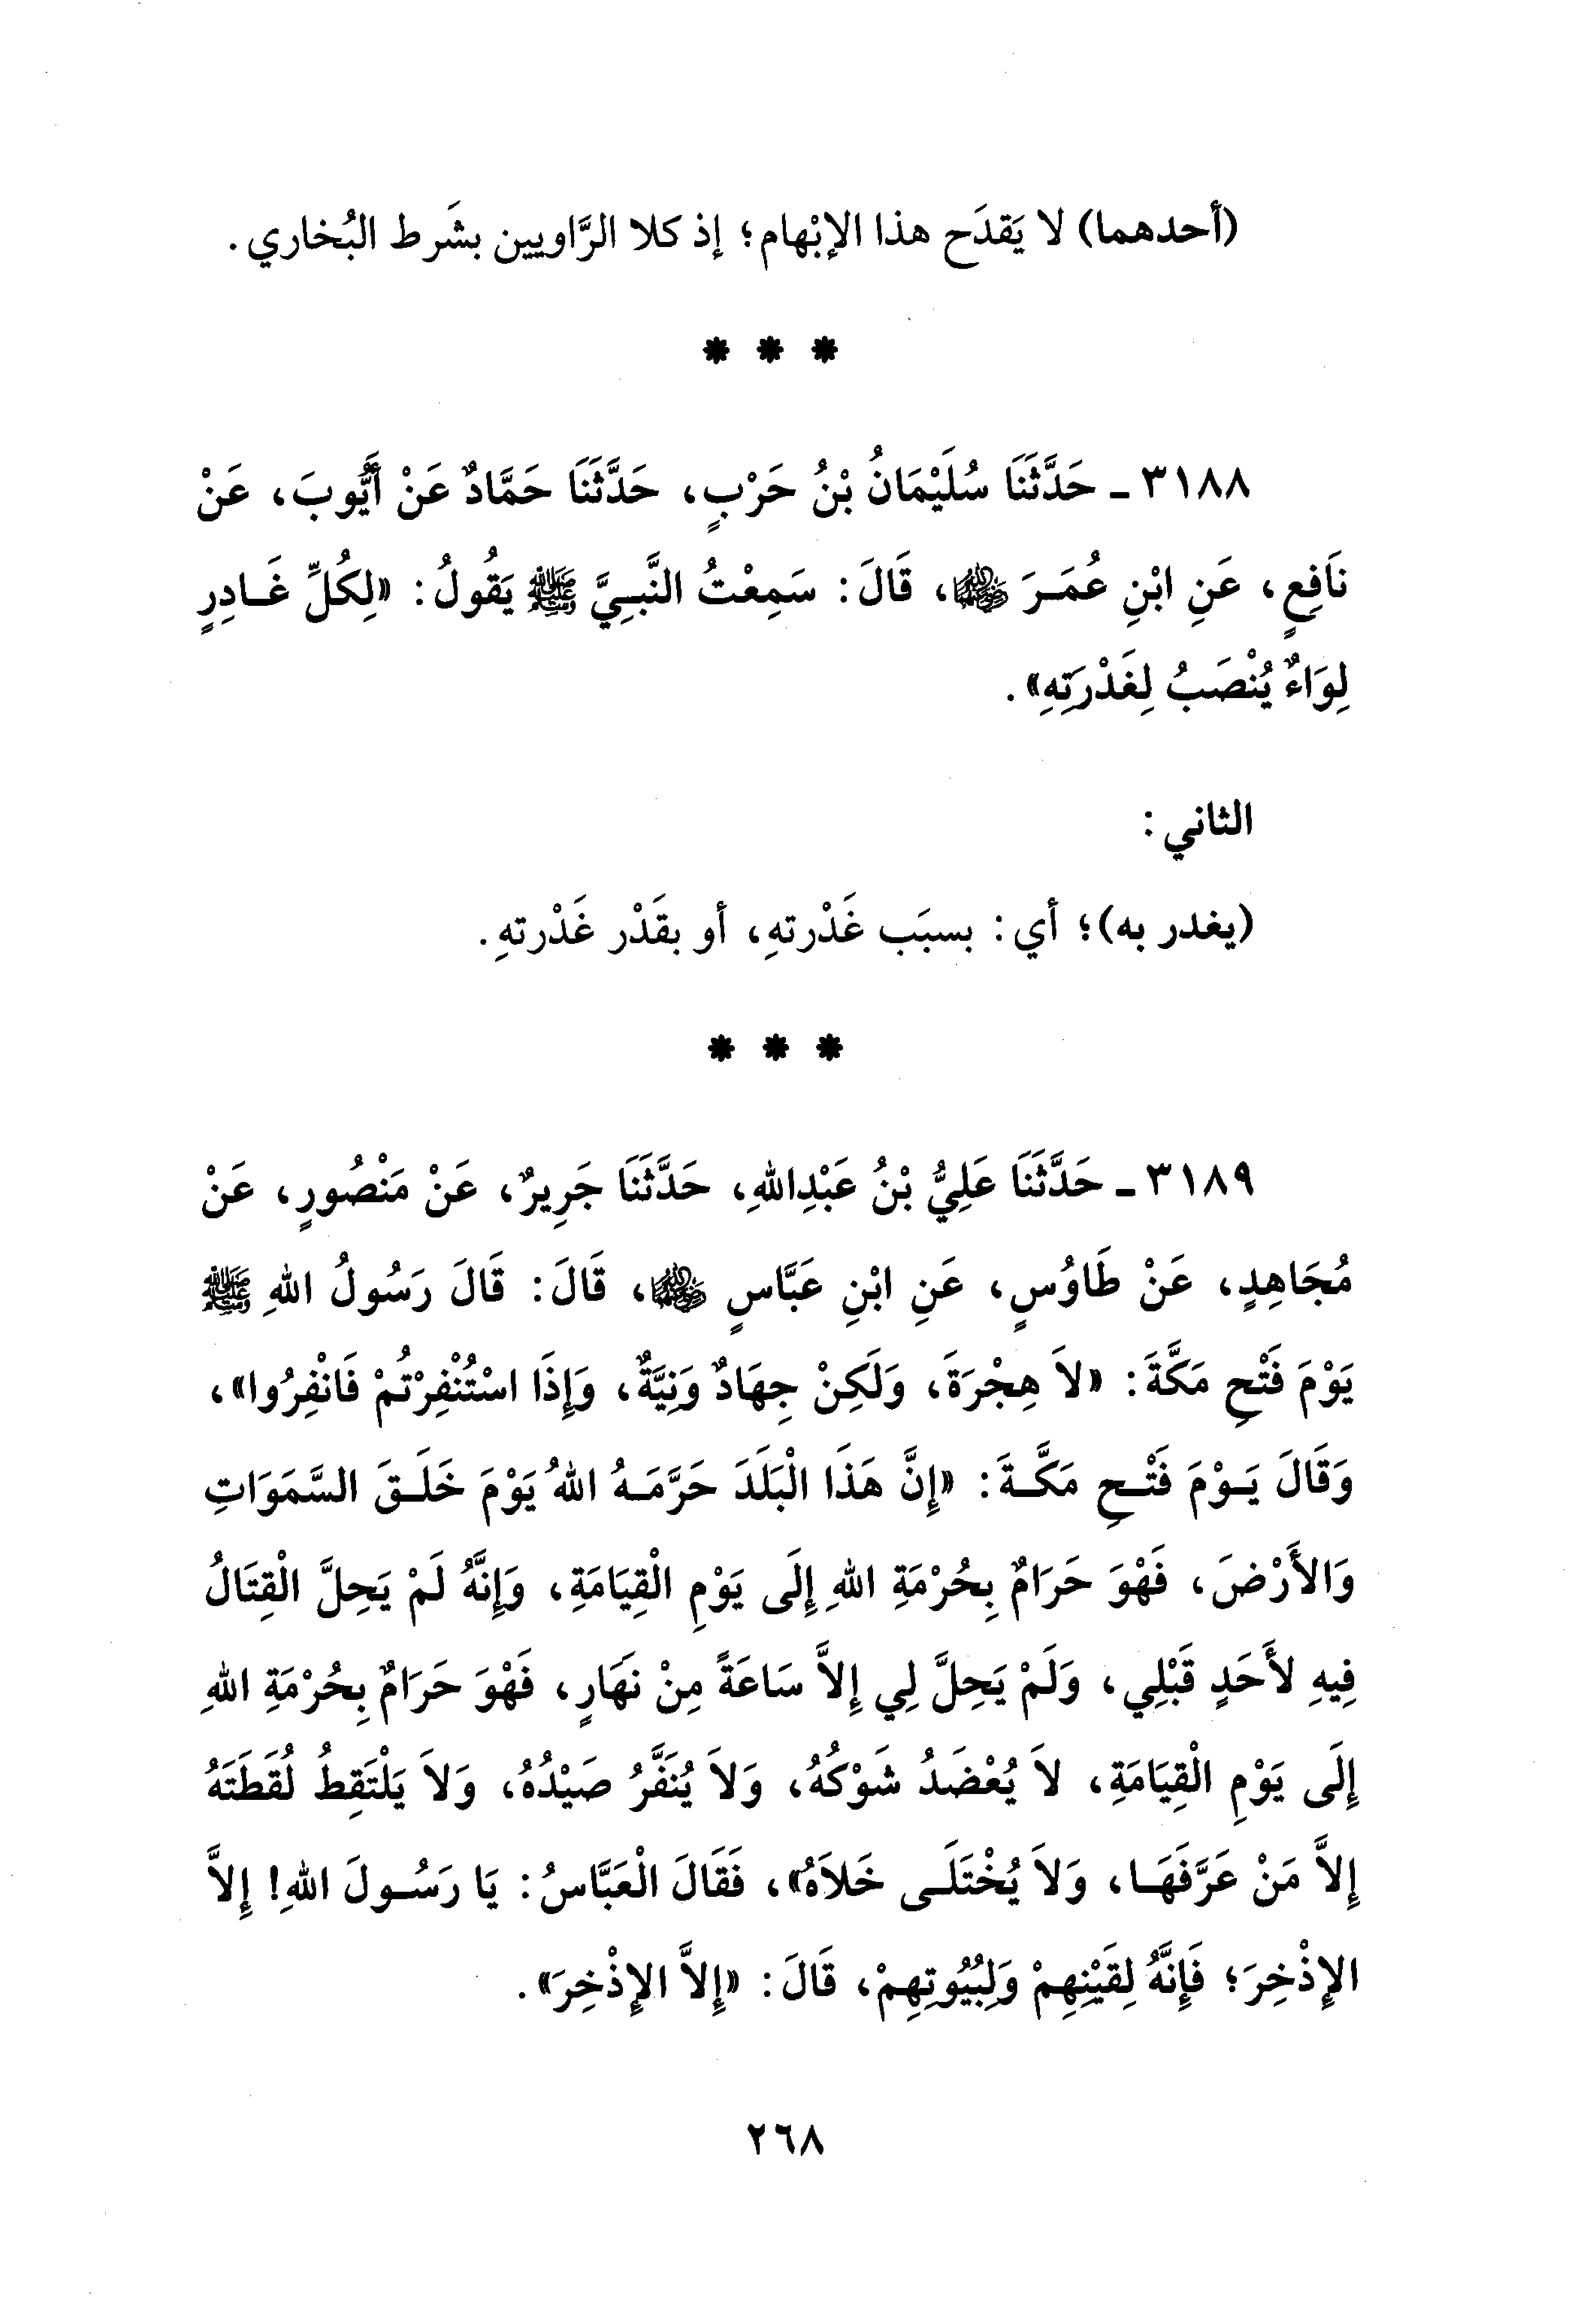 (أحدهما) لا يَقدَح هذا الإبْهام؛ إذ كلا الرَّاويين بشَرط البُخاري.
* * *
٣١٨٨ - حَدَّثَنَا سُلَيْمَانُ بْنُ حَرْبٍ، حَدَّثَنَا حَمَّادٌ عَنْ أَيُّوبَ، عَنْ
نَافِعٍ، عَنِ ابْنِ عُمَرَ رضي الله عنهما، قَالَ: سَمِعْتُ النَّبِيَّ ﷺ يَقُولُ: «لِكُلِّ غَادِرٍ
لِوَاءٌ يُنْصَبُ لِغَدْرَتِهِ».
الثاني:
(يغدر به)؛ أي: بسبَب غَدْرتهِ، أو بقَدْر غَدْرتهِ.
* * *
٣١٨٩ - حَدَّثَنَا عَلِيُّ بْنُ عَبْدِاللهِ، حَدَّثَنَا جَرِيرٌ، عَنْ مَنْصُورٍ، عَنْ
مُجَاهِدٍ، عَنْ طَاوُسٍ، عَنِ ابْنِ عَبَّاسٍ رضي الله عنهما، قَالَ: قَالَ رَسُولُ اللهِ ﷺ
يَوْمَ فَتْحِ مَكَّةَ: «لاَ هِجْرَةَ، وَلَكِنْ جِهَادٌ وَنِيَّةٌ، وَإِذَا اسْتُنْفِرْتُمْ فَانْفِرُوا»،
وَقَالَ يَوْمَ فَتْحِ مَكَّةَ: «إِنَّ هَذَا الْبَلَدَ حَرَّمَهُ اللهُ يَوْمَ خَلَقَ السَّمَوَاتِ
وَالأَرْضَ، فَهْوَ حَرَامٌ بِحُرْمَةِ اللهِ إِلَى يَوْمِ الْقِيَامَةِ، وَإِنَّهُ لَمْ يَحِلَّ الْقِتَالُ
فِيهِ لأَحَدٍ قَبْلِي، وَلَمْ يَحِلَّ لِي إِلاَّ سَاعَةً مِنْ نَهَارٍ، فَهْوَ حَرَامٌ بِحُرْمَةِ اللهِ
إِلَى يَوْمِ الْقِيَامَةِ، لاَ يُعْضَدُ شَوْكُهُ، وَلاَ يُنَفَّرُ صَيْدُهُ، وَلاَ يَلْتَقِطُ لُقَطَتَهُ
إِلاَّ مَنْ عَرَّفَهَا، وَلاَ يُخْتَلَى خَلاَهُ»، فَقَالَ الْعَبَّاسُ: يَا رَسُولَ اللهِ! إِلاَّ
الإِذْخِرَ؛ فَإِنَّهُ لِقَيْنِهِمْ وَلِبُيُوتِهِمْ، قَالَ: «إِلاَّ الإِذْخِرَ».
٢٦٨